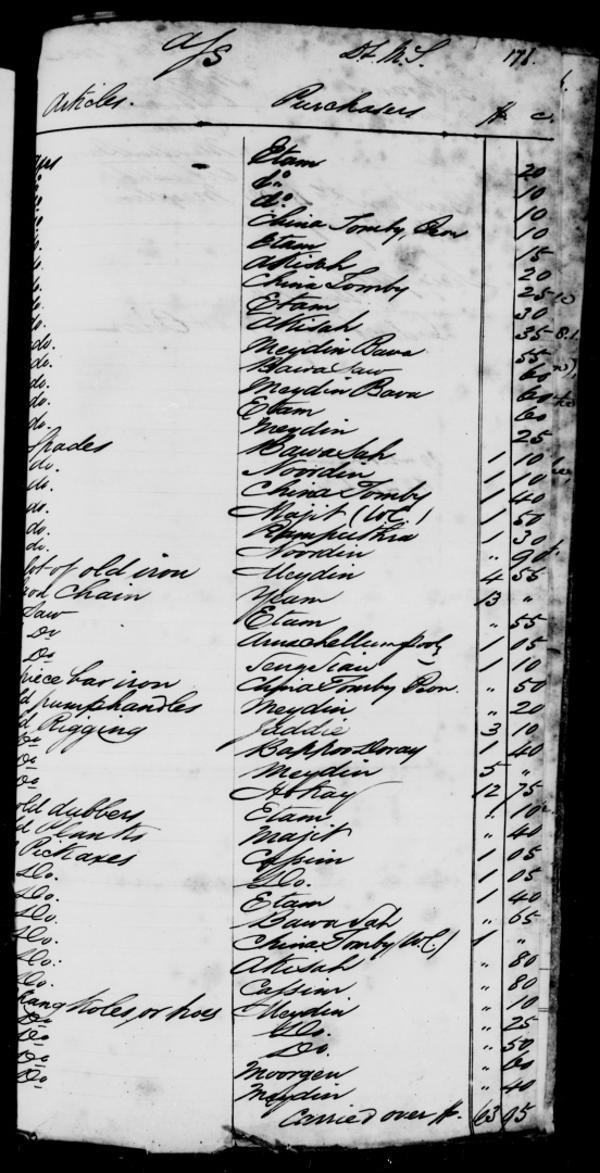 a/s St. M.S. 171.
Articles. Purchasers $ c.
Etam 20
do. do. 10
do. do. 10
China Tomby, Peon 10
Etam 15
Akisah 20
China Tomby 25
Etam 30
do. Akisah 35
do. Meydin Bawa 55
do. Bawa Saw 60
do. Meydin Bava 60
do. Etam 60
do. Meydin 25
Spades Bawa Sah 1 10
do. Noordin 1 10
do. China Tomby 1 40
do. Majit (W.C.) 1 50
do. 1 30
do. Noordin " 90
lot of old iron Meydin 4 55
Chain 13 "
Saw Etam " 55
Do 1 05
Do 1 10
piece bar iron China Tomby Peon. " 50
pump handles Meydin " 20
Rigging Jaddie 3 10
Do Bappoo Doray 1 40
Do Meydin 5 "
Do 12 75
old dubbers Etam " 10
Planks Majit " 40
Pickaxes Cassim 1 05
Do. Do. 1 05
Do. Etam 1 40
Do. Bawa Sah " 65
Do. China Tomby (W.C.) 1 "
Do. Akisah " 80
Do. Cassim " 80
holes, or hoes Meydin " 10
Do Do. " 25
Do Do. " 50
Do Moorgen " 60
Do Meydin " 40
Carried over $. 63 95